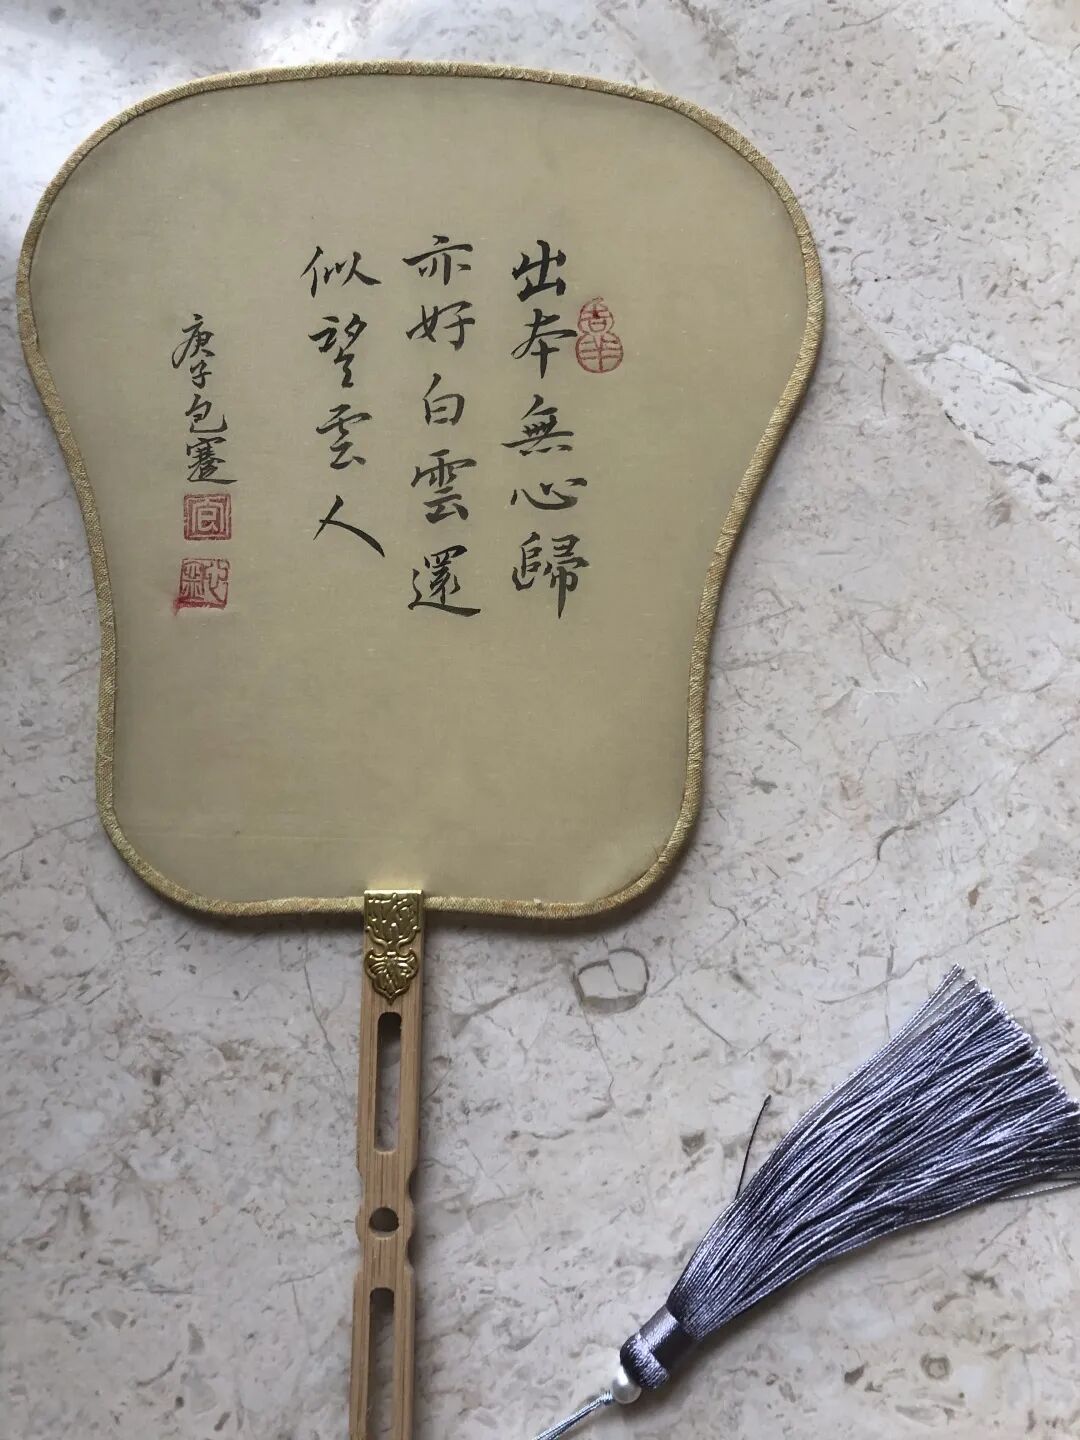 出本無心歸
亦好白雲還
似望雲人
庚子包蹇